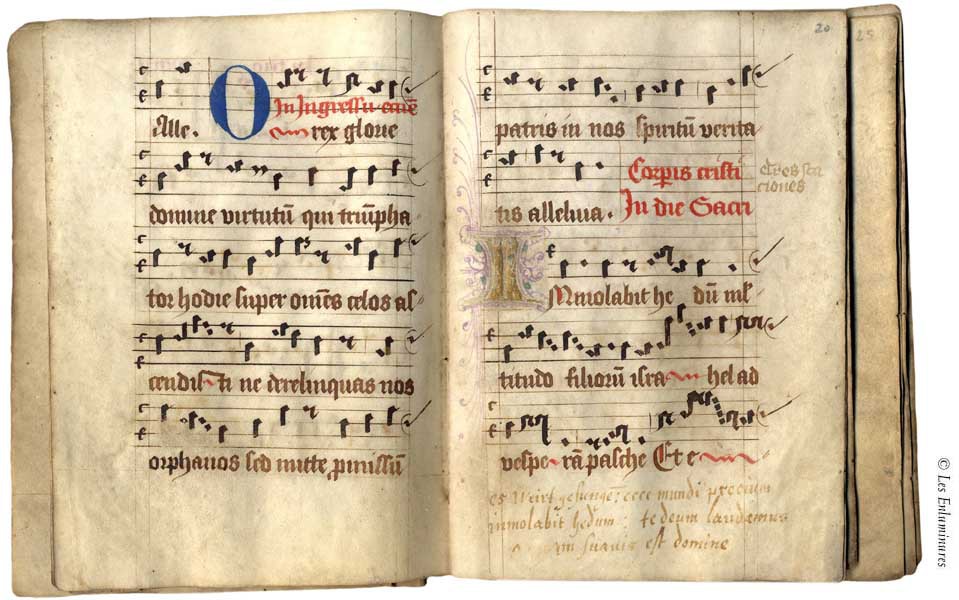 In Ingressu
Alle. O rex glorie
domine virtutū qui triūpha
tor hodie super omēs celos as-
cendisti ne derelinquas nos
orphanos sed mitte pmissū
20
25
patris in nos spiritū verita
tis alleluia.
Corpis cristi
In die Sacri
ciones
IMmolabit he dū ml-
titudo filiorū isra hel ad
vespe rā pasche Et e
es Wirt gesunge: ecce mundi precium
inmolabit hedum: te deum laudamus
suavis est domine
© Les Enluminures